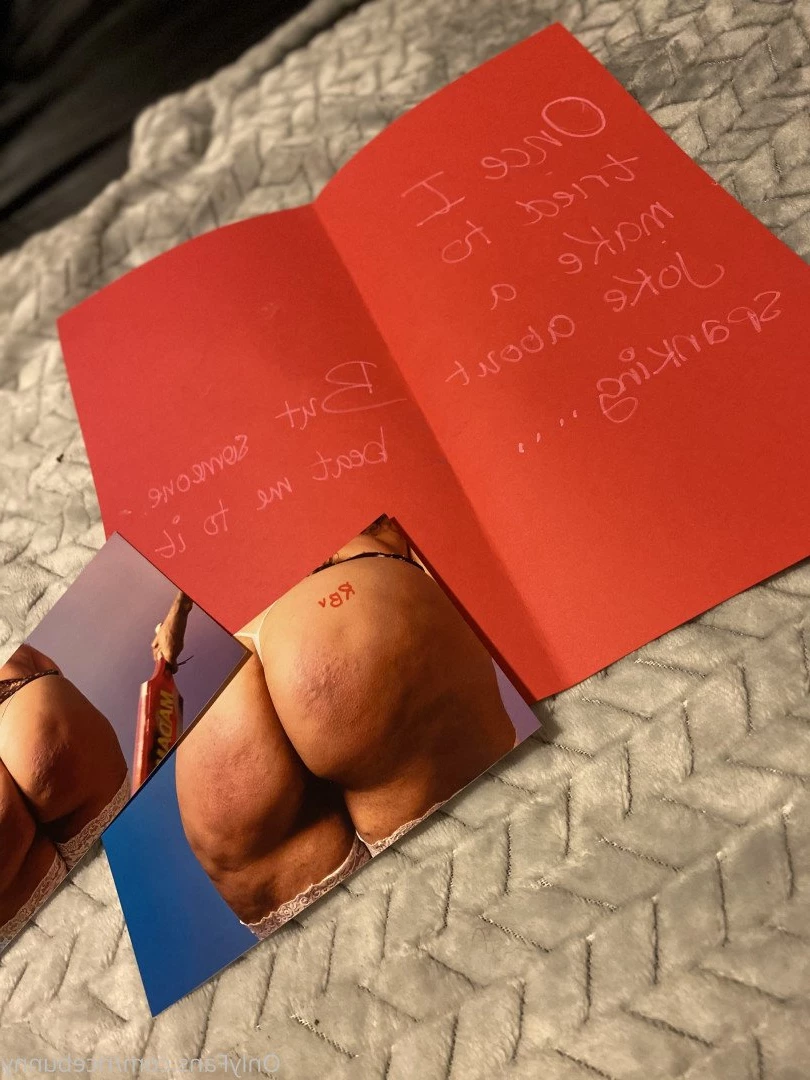 Once I
tried to
make a
joke about
spanking....
But
someone..
beat me to it
RBV
MADAM
OnlyFans.com/ricebunny